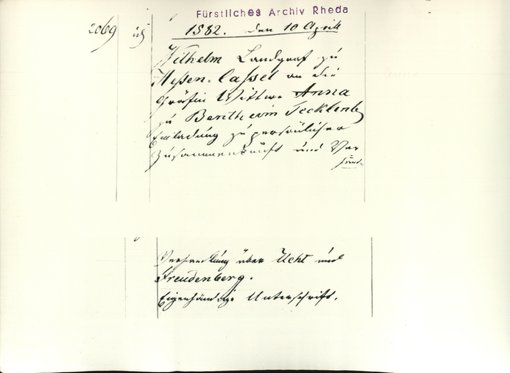 Fürstliches Archiv Rheda
2069
1582. den 10 April
Wilhelm Landgraf zu
Hessen-Cassel an die
Gräfin Wittwe Anna
zu Bentheim Tecklenb
Einladung zu persönlicher
Zusammenkunft und Ver
Verhandlung über Ucht und
Freudenberg.
Eigenhändige Unterschrift.